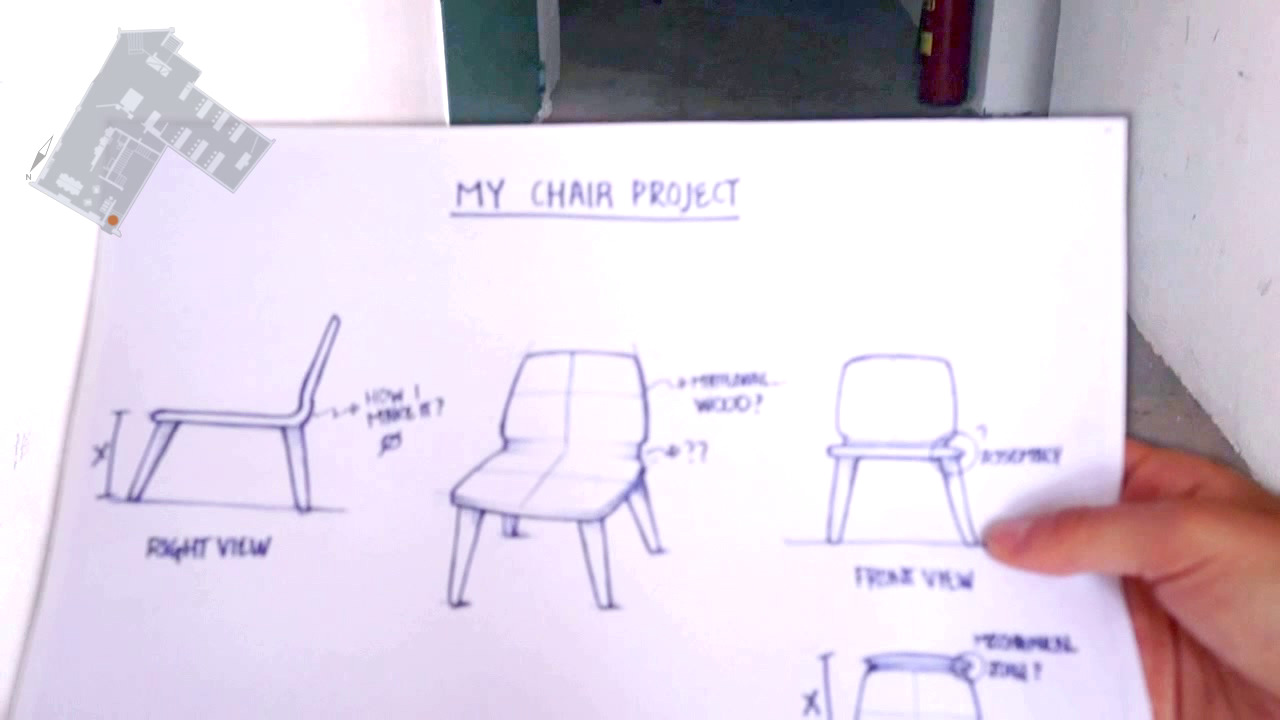 N
MY CHAIR PROJECT
HOW I
MAKE IT?
X
RIGHT VIEW
MATERIAL
WOOD?
??
?
ASSEMBLY
FRONT VIEW
MECHANICAL
X